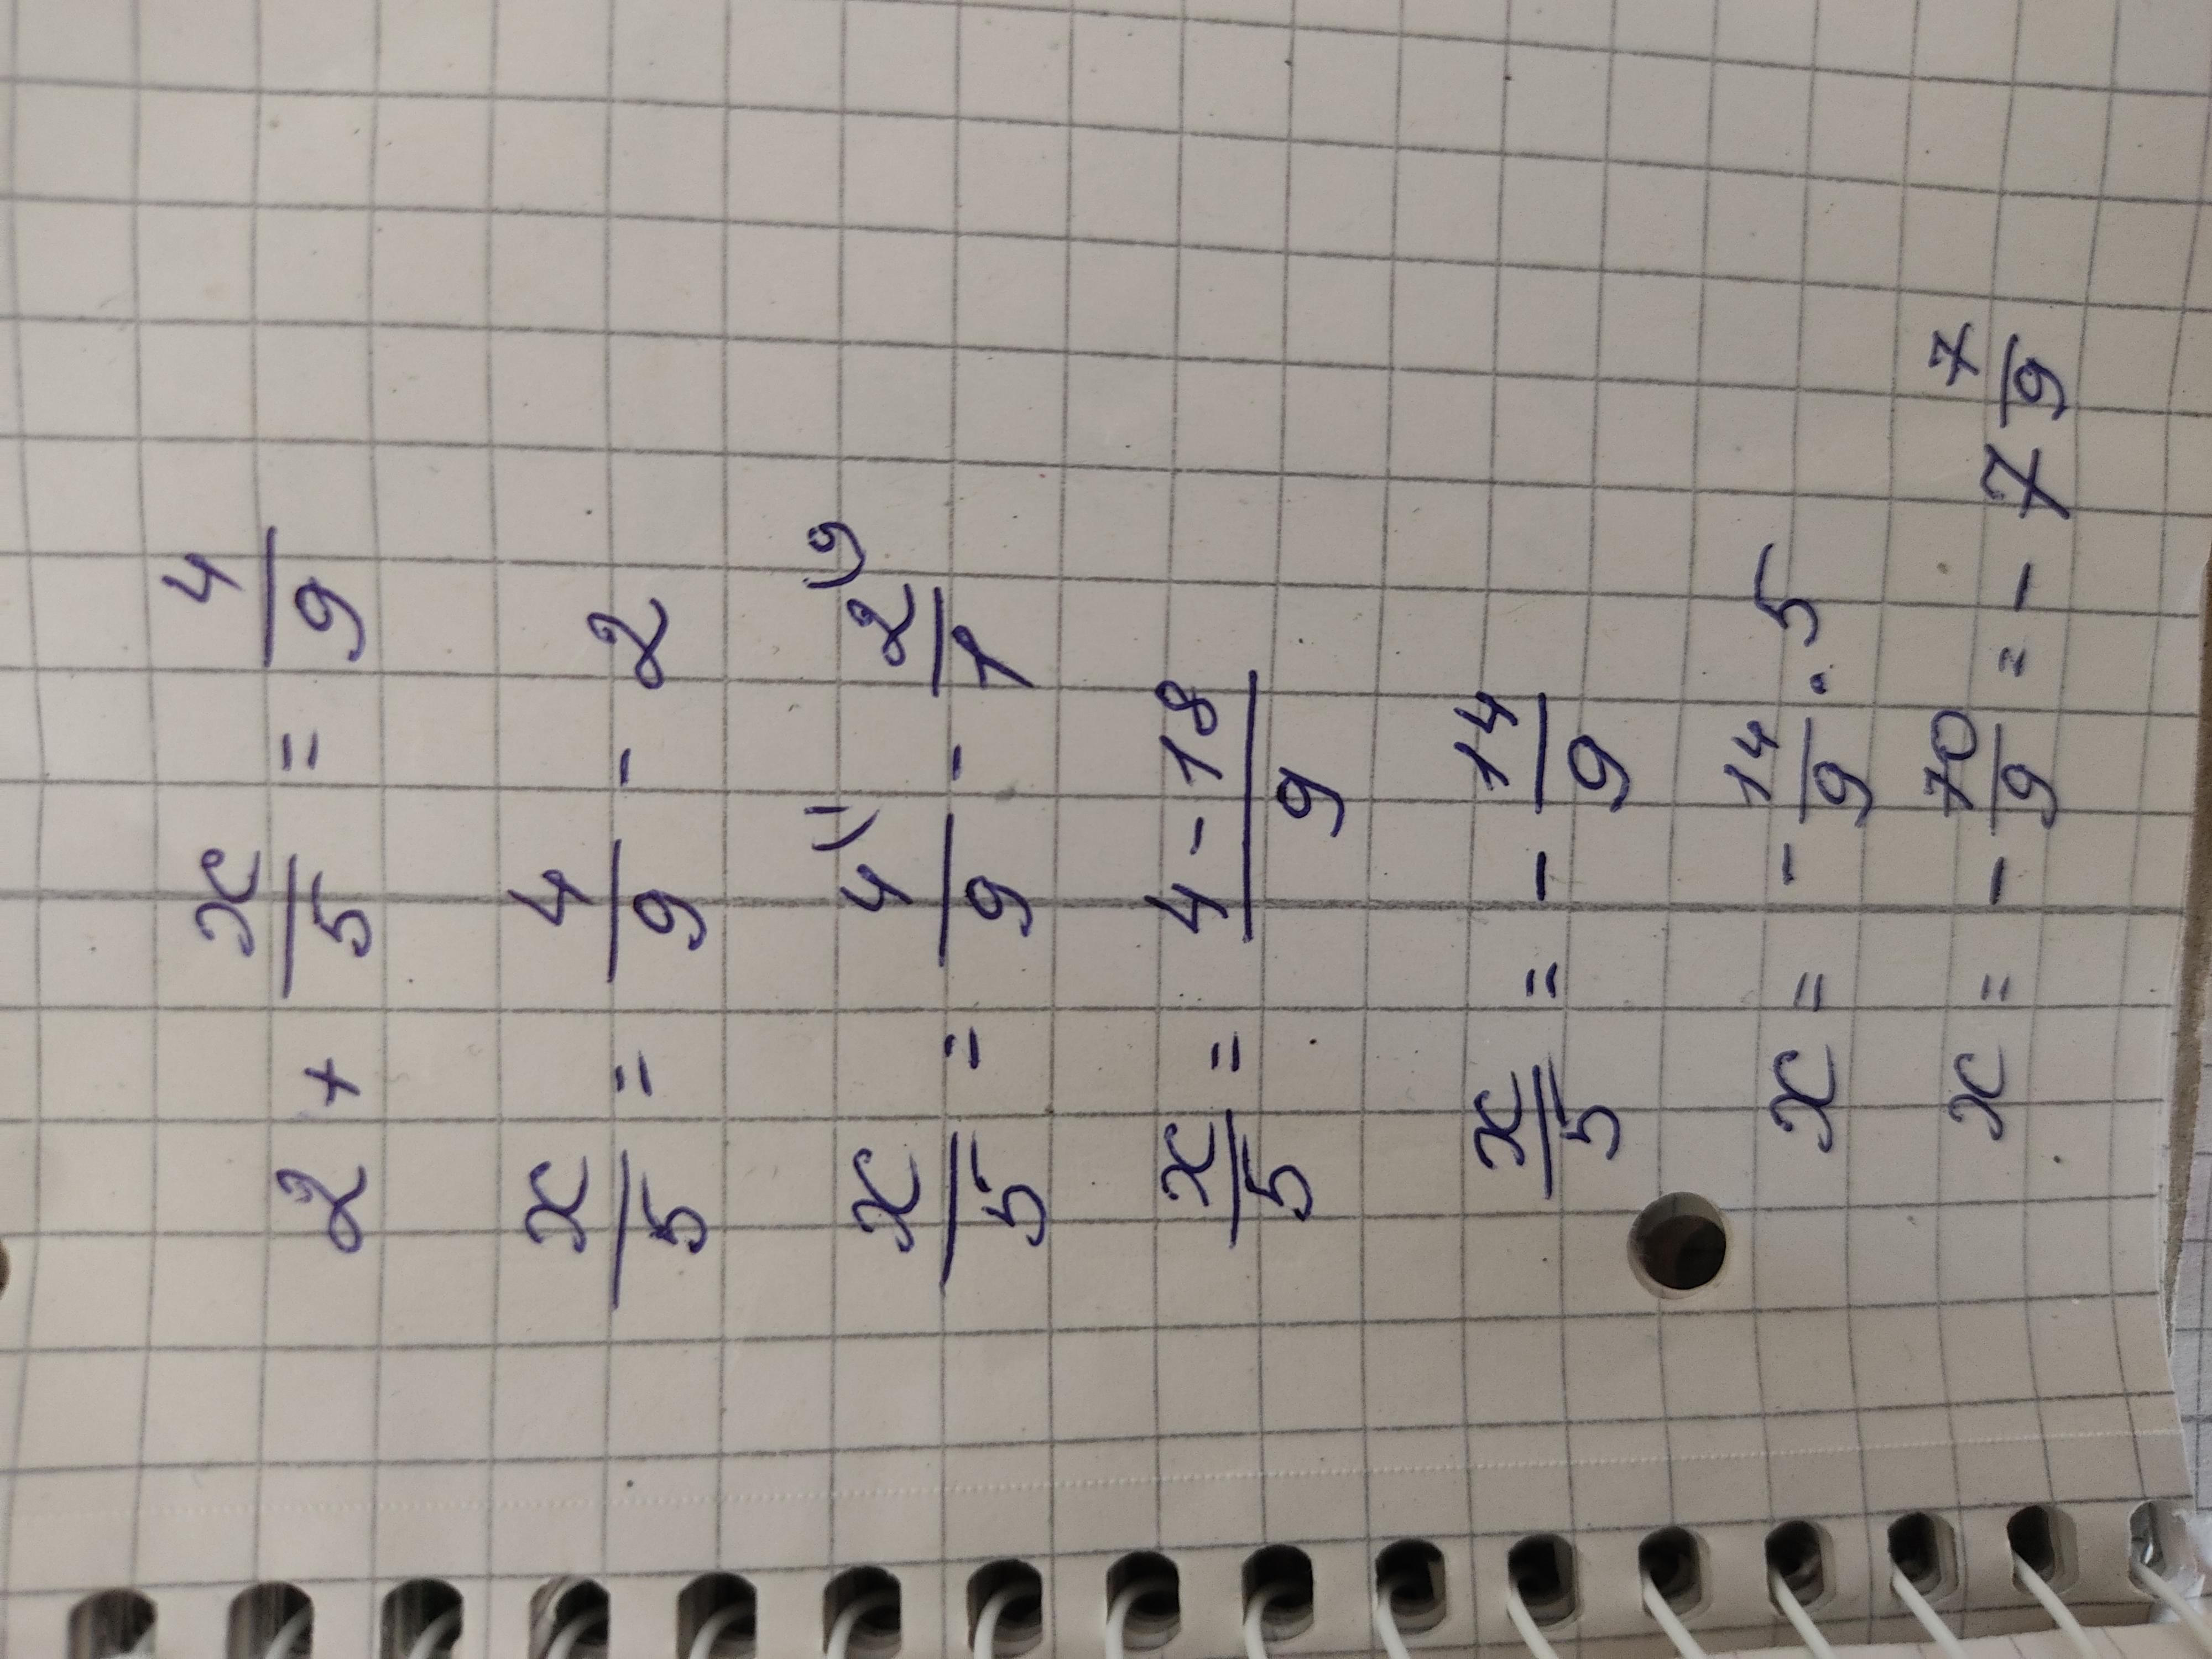 2 + x/5 = 4/9
x/5 = 4/9 - 2
x/5 = 4\1/9 - 2\9/1
x/5 = 4-18/9
x/5 = - 14/9
x = - 14/9 · 5
x = - 70/9 = - 7 7/9